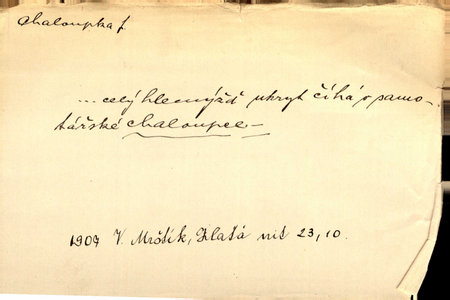 chaloupka f.
... celý hlemýžď ukryt číhá v samo-
tářské chaloupce –
1907 V. Mrštík, Zlatá nit 23, 10.